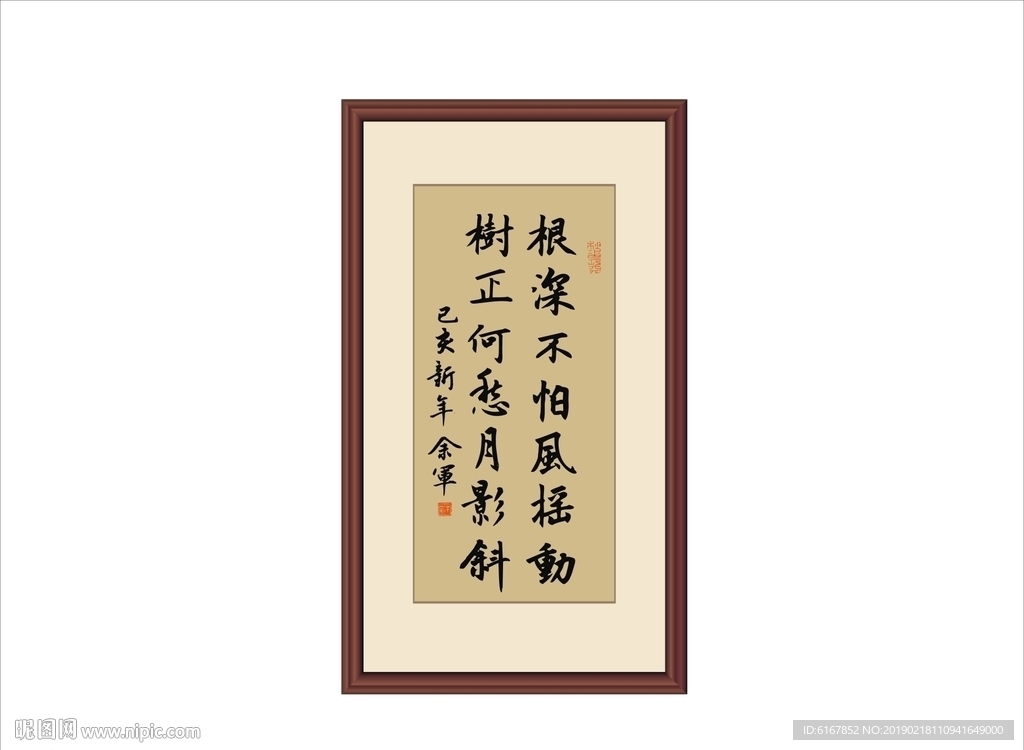 根深不怕風摇動
樹正何愁月影斜
己亥新年 余軍
昵图网 www.nipic.com
ID:6167852 NO:20190218110941649000